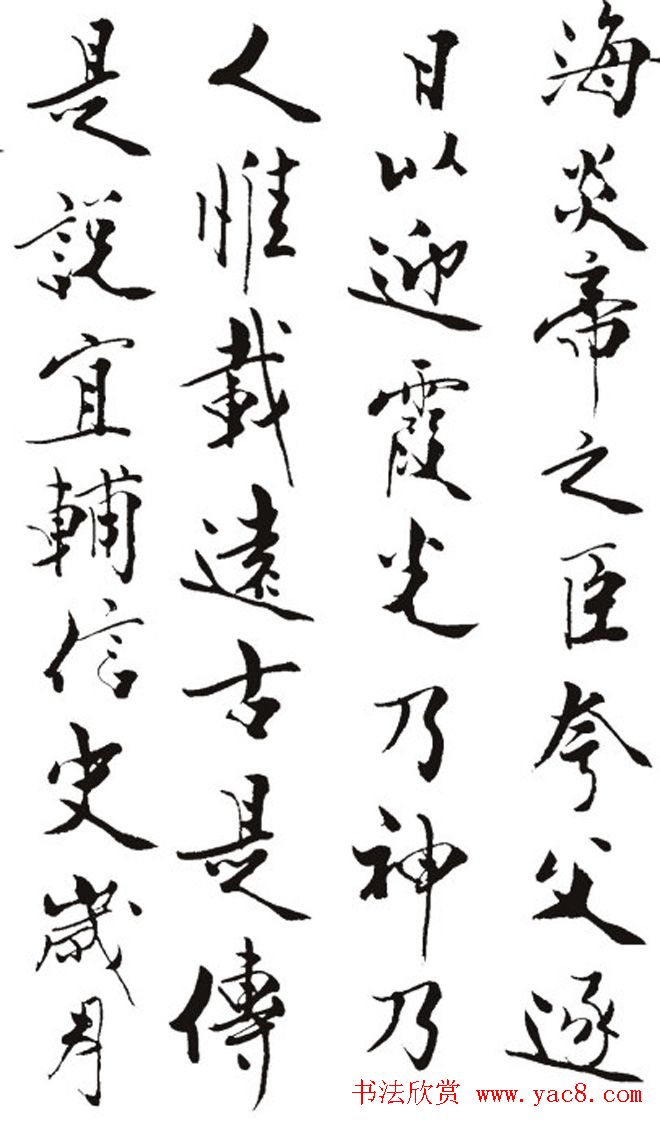 海炎帝之臣夸父逐
日以迎霞光乃神乃
人惟載遠古是傳
是說宜輔信史歲月
书法欣赏 www.yac8.com